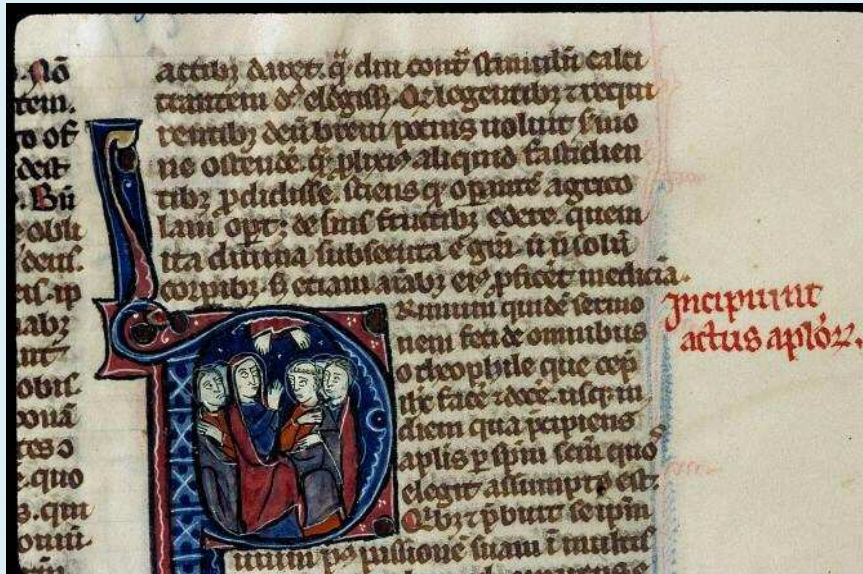 . Nō
tem.
go of
dest
. Bn̄
e obli
deus.
eis. ip
nabꝫ
obis.
bonā
tes ɔ
e. quo
s. qui
actibꝫ daret. qͣ diu contᷓ stimulū calci
trantem dˢ elegissꝫ. Qͥ legentibꝫ ⁊ requi
rentibꝫ deū breui potius uoluit s̓mo
ne ostendē. qͣ ꝓlixiꝰ aliquid fastidien
tibꝫ ꝓdidisse. sciens qꝫ oꝑantē agrico
lam oport; de suis fructibꝫ edere. quem
ita diuina subsecuta ē gr̄a. ut n̄ solū
corꝑibꝫ. s; etiam aīabꝫ eiꝰ ꝓficēt medicīa.
PRimum quidē sermo
nem feci de omnibus
o theophile que cep̄
ih̄c facē ⁊ docē. usqꝫ in
diem qua p̄cipiens
ap̄lis ꝑ sp̄m sc̄m quoˢ
elegit assumptꝰ est.
Qͥbꝫ ⁊ p̄buit seip̄m
uiuum pꝰ passionē suam ī multis
Jncipiunt
actus ap̄loꝝ.